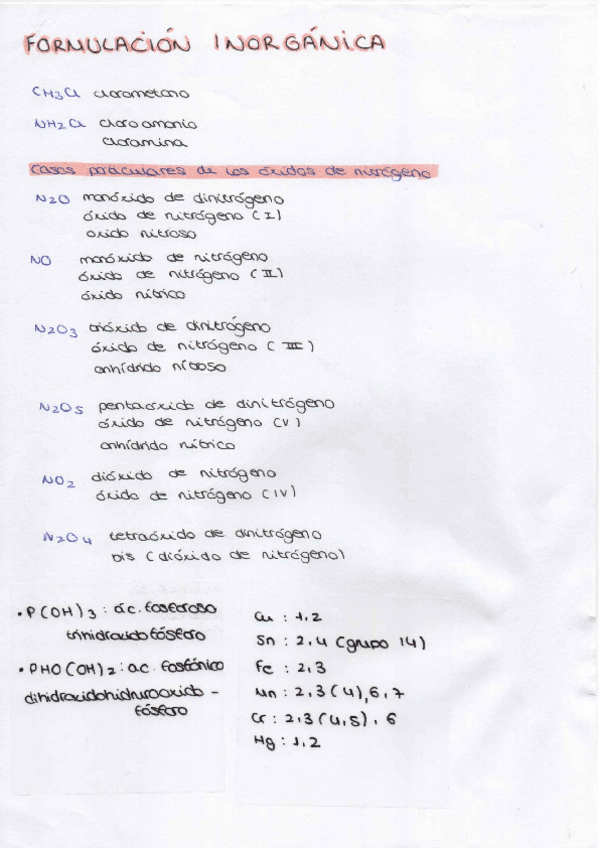 FORMULACIÓN INORGÁNICA
CH3Cl clorometano
NH2Cl cloroamonio
cloramina
casos particulares de los óxidos de nitrógeno
N2O monóxido de dinitrógeno
óxido de nitrógeno (I)
oxido nitroso
NO monóxido de nitrógeno
óxido de nitrógeno (II)
óxido nítrico
N2O3 trióxido de dinitrógeno
óxido de nitrógeno (III)
anhídrido nitroso
N2O5 pentaóxido de dinitrógeno
óxido de nitrógeno (V)
anhídrido nítrico
NO2 dióxido de nitrógeno
óxido de nitrógeno (IV)
N2O4 tetraóxido de dinitrógeno
bis (dióxido de nitrógeno)
• P(OH)3 : ác. fosforoso
trihidroxidofósforo
• PHO(OH)2 : ac. fosfónico
dihidroxidohidrurooxido-
fósforo
Cu : 1,2
Sn : 2,4 (grupo 14)
Fe : 2,3
Mn : 2,3(4),6,7
Cr : 2,3(4,5), 6
Hg : 1,2